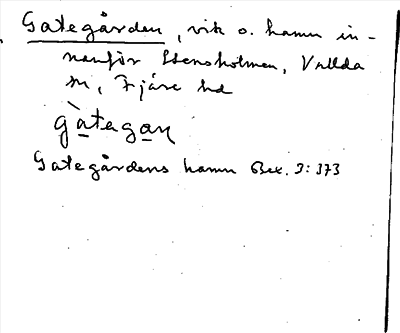 Gategården, vik o. hamn in-
nanför Stensholmen, Vallda
sn, Fjäre hd
gàtegan
Gategårdens hamn Bex. 3:373